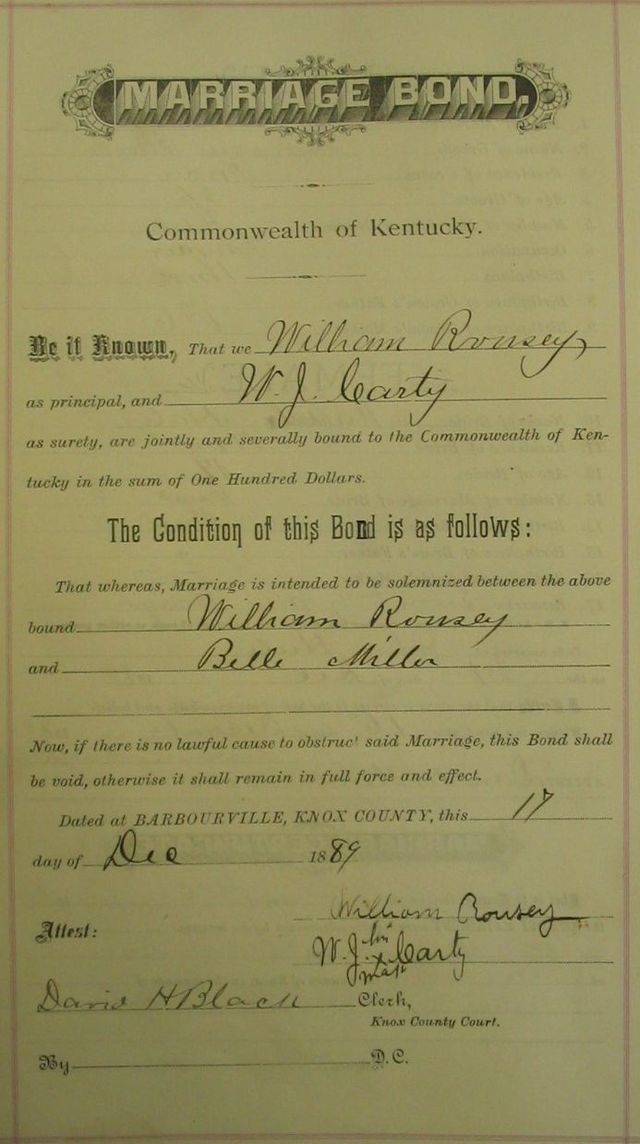 MARRIAGE BOND.
Commonwealth of Kentucky.
Be it Known, That we William Rousey
as principal, and W. J. Carty
as surety, are jointly and severally bound to the Commonwealth of Ken-
tucky in the sum of One Hundred Dollars.
The Condition of this Bond is as follows:
That whereas, Marriage is intended to be solemnized between the above
bound William Rousey
and Belle Miller
Now, if there is no lawful cause to obstruc' said Marriage, this Bond shall
be void, otherwise it shall remain in full force and effect.
Dated at BARBOURVILLE, KNOX COUNTY, this 17
day of Dec 1889
William Rousey
Attest:
his
W. J. x Carty
mark
David H Black Clerk,
Knox County Court.
By D.C.